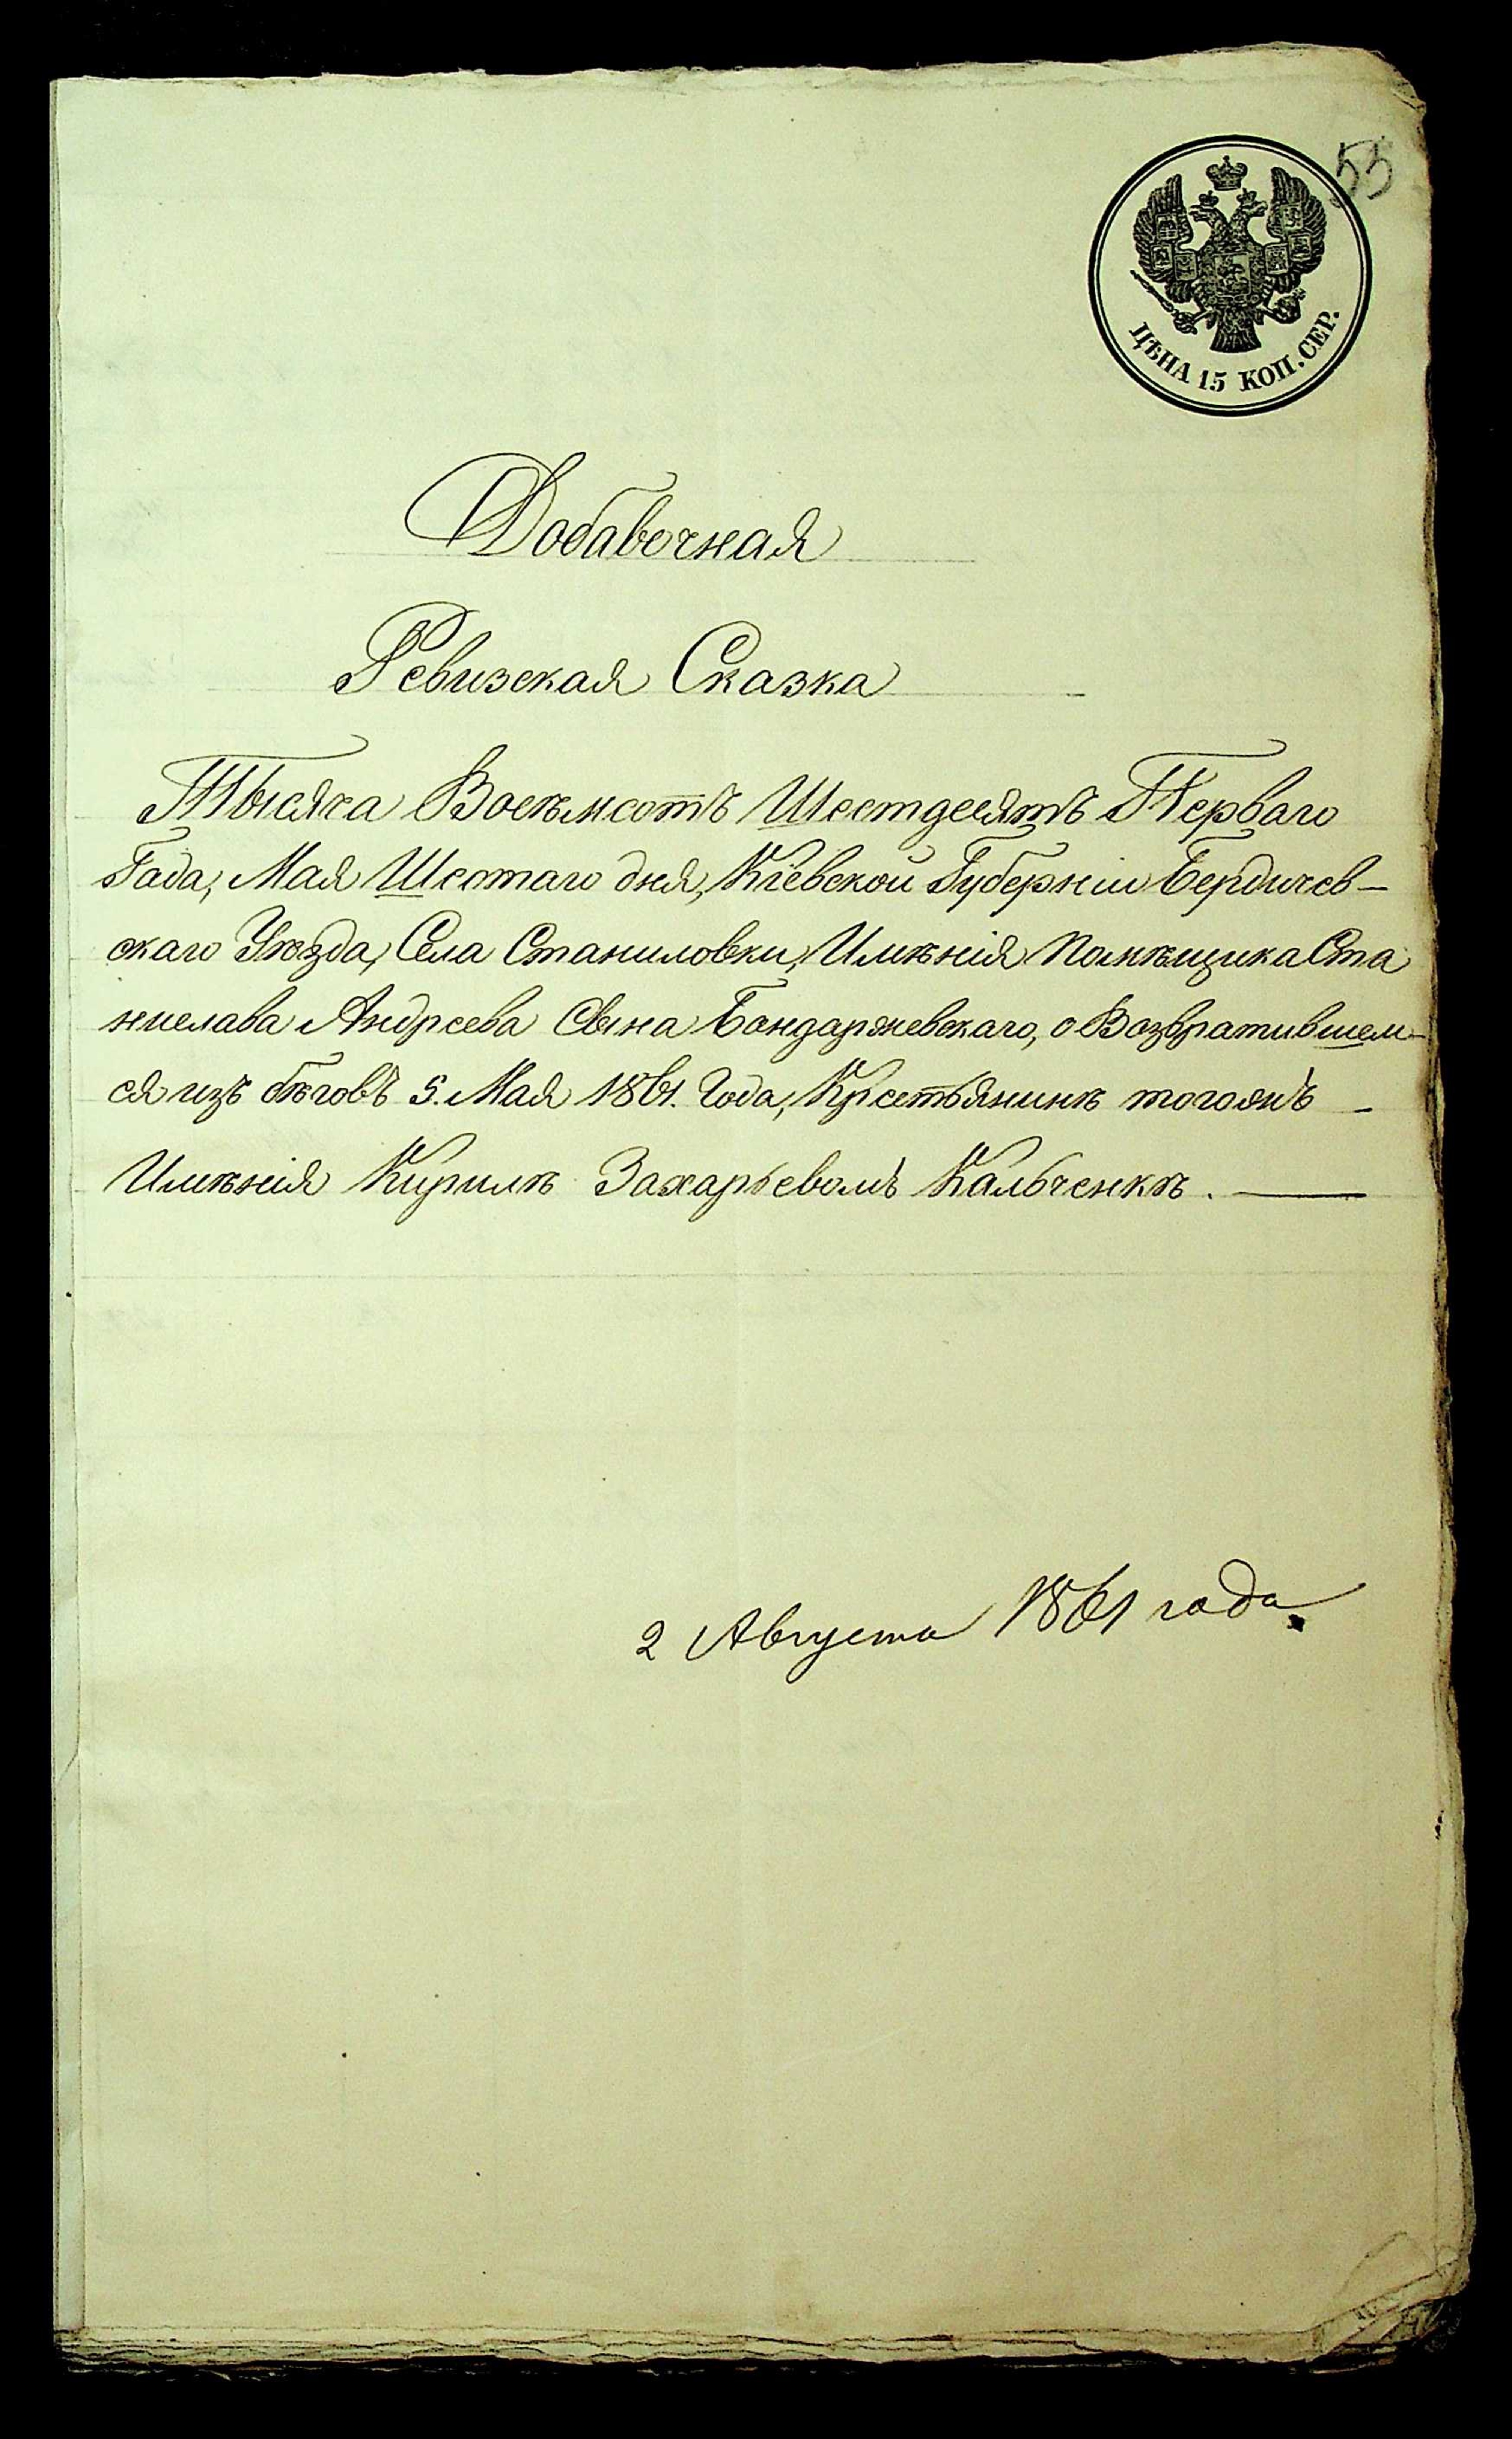 55
ЦѢНА 15 КОП. СЕР.
Добавочная
Ревизская Сказка
Тысяча Восемсотъ Шестдесятъ Перваго
Года, Мая Шестаго дня, Кіевской Губерніи Бердичев-
скаго Уѣзда, Села Станиловки, Имѣнія Помѣщика Ста
нислава Андреева Сына Бондаржевскаго, о Возвратившем-
ся изъ бѣговъ 5. Мая 1861. Года, Крестьянинѣ тогожъ -
Имѣнія Кирилѣ Захарьевомъ Кальченкѣ. —
2 Августа 1861 года.